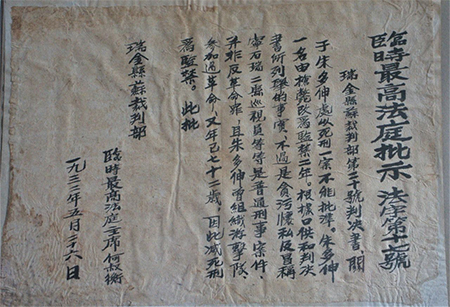 臨時最高法庭批示 法字第十七號
瑞金縣蘇裁判部第二十號判决書,關
于朱多伸處以死刑一案不能批準。朱多伸
一名由槍斃改爲監禁二年。根據口供和判决
書所列舉的事實,不過是貪污懷私及冒稱
寧石瑞三縣巡視員等等是普通刑事案件,
并非反革命罪,且朱多伸曾組織游擊隊,
參加過革命,又年已七十二歲,因此減死刑
爲監禁。 此批
瑞金縣蘇裁判部
臨時最高法庭主席 何叔衡
一九三二年五月二十六日